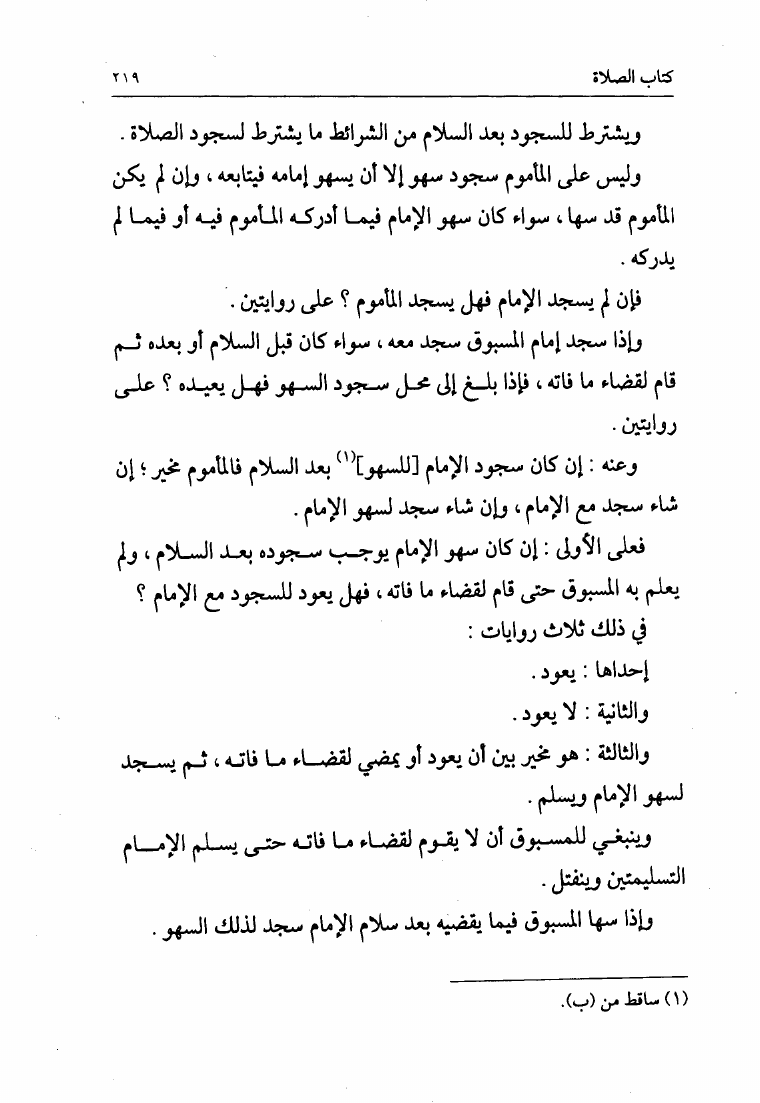 كتاب الصلاة ٢١٩
ويشترط للسجود بعد السلام من الشرائط ما يشترط لسجود الصلاة .
وليس على المأموم سجود سهو إلا أن يسهو إمامه فيتابعه ، وإن لم يكن
المأموم قد سها ، سواء كان سهو الإمام فيما أدركه المأموم فيه أو فيما لم
يدركه .
فإن لم يسجد الإمام فهل يسجد المأموم ؟ على روايتين .
وإذا سجد إمام المسبوق سجد معه ، سواء كان قبل السلام أو بعده ثم
قام لقضاء ما فاته ، فإذا بلغ إلى محل سجود السهو فهل يعيده ؟ على
روايتين .
وعنه : إن كان سجود الإمام [للسهو](١) بعد السلام فالمأموم مخير ؛ إن
شاء سجد مع الإمام ، وإن شاء سجد لسهو الإمام .
فعلى الأولى : إن كان سهو الإمام يوجب سجوده بعد السلام ، ولم
يعلم به المسبوق حتى قام لقضاء ما فاته ، فهل يعود للسجود مع الإمام ؟
في ذلك ثلاث روايات :
إحداها : يعود .
والثانية : لا يعود .
والثالثة : هو مخير بين أن يعود أو يمضي لقضاء ما فاته ، ثم يسجد
لسهو الإمام ويسلم .
وينبغي للمسبوق أن لا يقوم لقضاء ما فاته حتى يسلم الإمام
التسليمتين وينفتل .
وإذا سها المسبوق فيما يقضيه بعد سلام الإمام سجد لذلك السهو .
(١) ساقط من (ب).